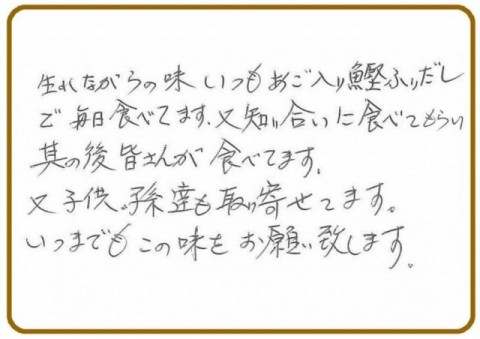 生れながらの味 いつもあご入り鰹ふりだし
で毎日食べてます、又知り合いに食べてもらい
其の後皆さんが食べてます、
又子供、孫達も取り寄せてます。
いつまでもこの味をお願い致します。